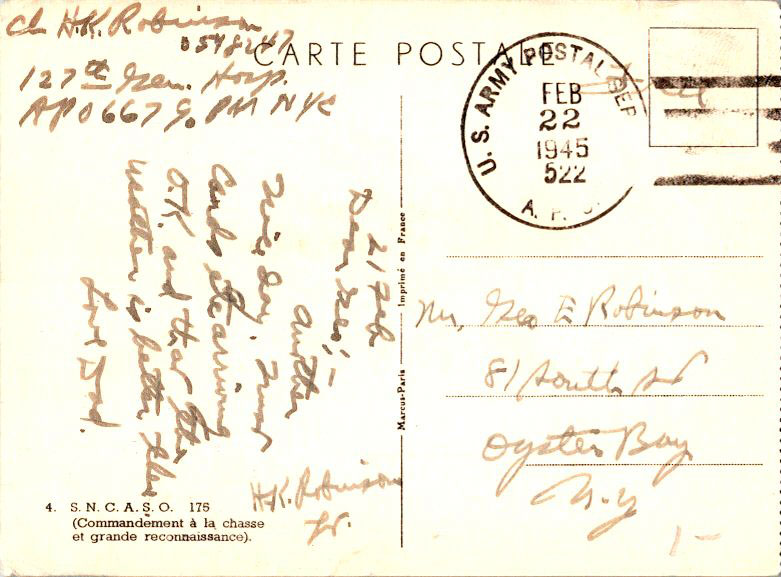 Ch H.K. Robinson
0548247
127th Gen. Hosp.
APO 667 % PM NYC
CARTE POSTALE
U. S. ARMY POSTAL SER
FEB
22
1945
522
A. P. O.
Free
21 Feb
Dear Geo; -
Another
nice day. Trust
Cards are arriving
O.K. and that the
weather is better
Love Dad.
H.K. Robinson
Mr. Geo E Robinson
81 South St
Oyster Bay
N.Y
1-
Marcus-Paris
Imprimé en France
4. S. N. C. A. S. O. 175
(Commandement à la chasse
et grande reconnaissance).